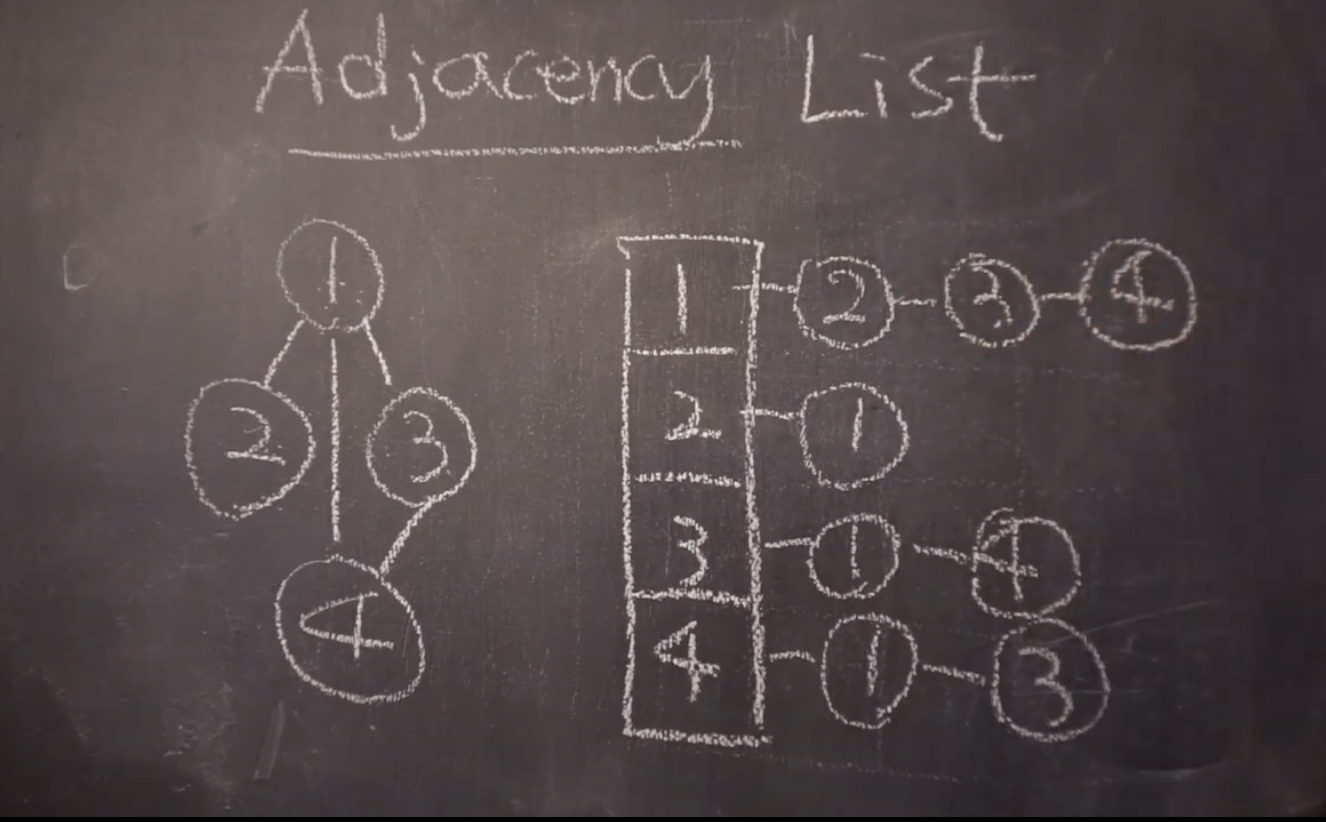 Adjacency List
1
2 3
4
1 2 3 4
2 1
3 1 4
4 1 3